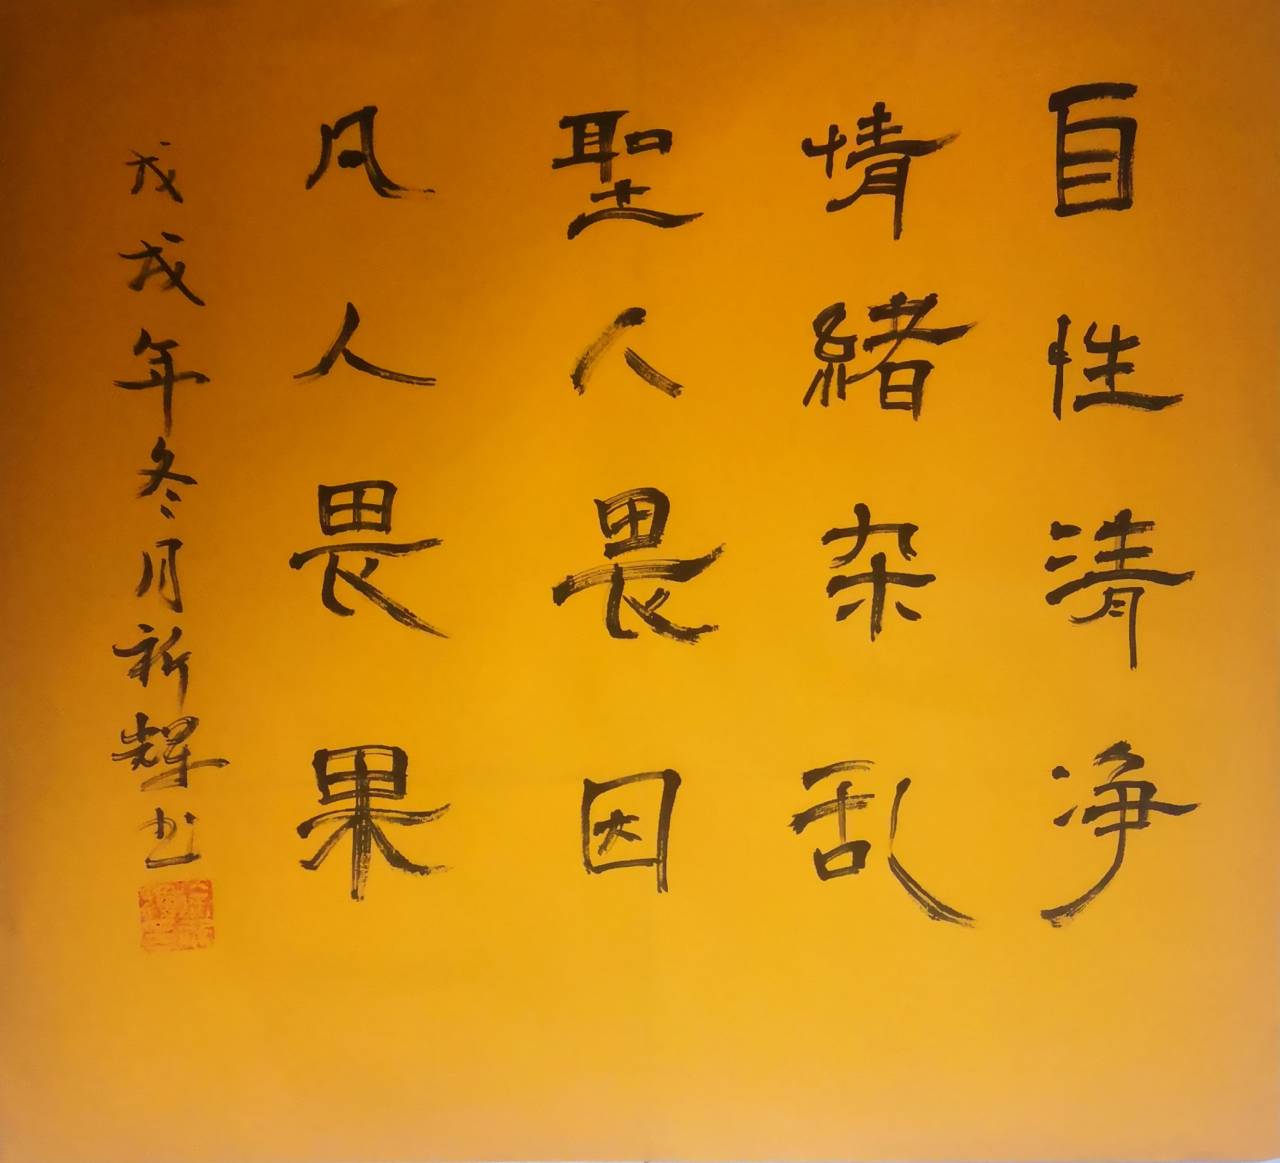 自性清净
情緒杂乱
聖人畏因
凡人畏果
戊戌年冬月祈輝书